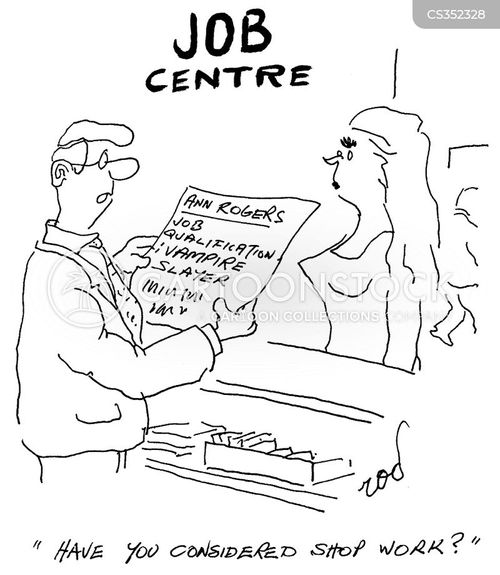 CS352328
JOB
CENTRE
ANN ROGERS
JOB
QUALIFICATION
: VAMPIRE
SLAYER
CARTOONSTOCK
CARTOON COLLECTIONS COMPANY
rod
"HAVE YOU CONSIDERED SHOP WORK?"